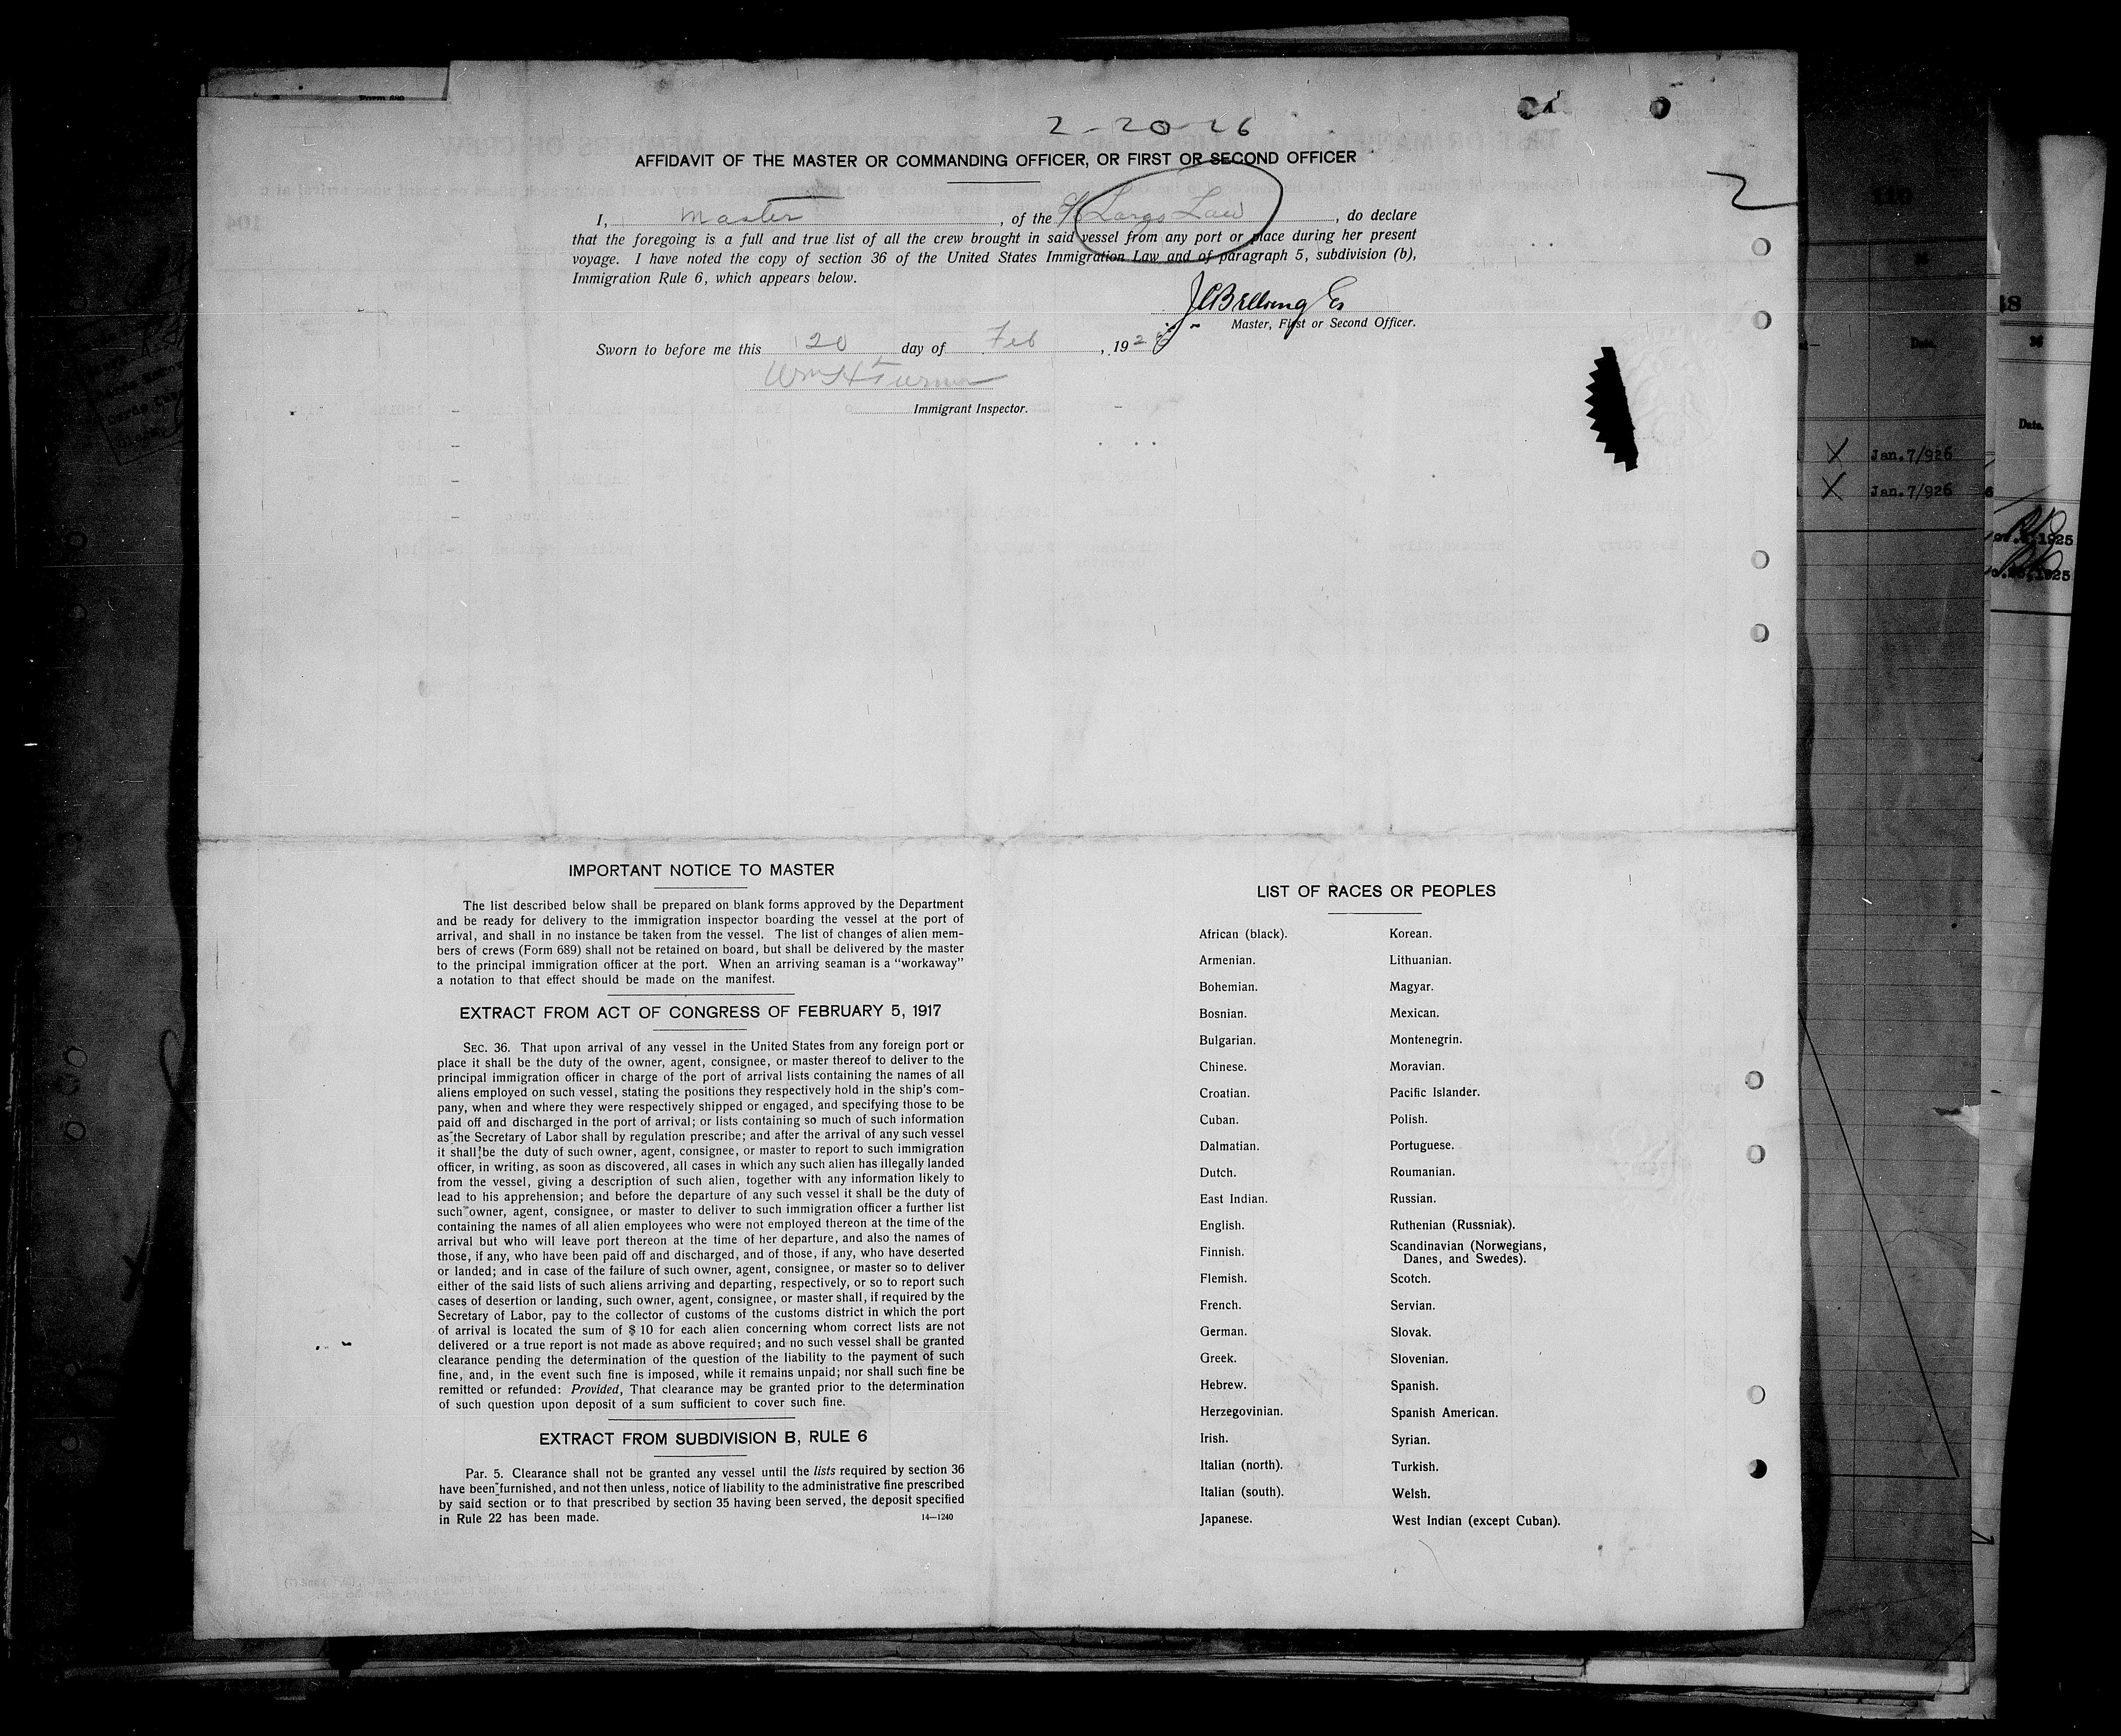 2-20-26
AFFIDAVIT OF THE MASTER OR COMMANDING OFFICER, OR FIRST OR SECOND OFFICER
I, Master, of the Largs Law, do declare
that the foregoing is a full and true list of all the crew brought in said vessel from any port or place during her present
voyage. I have noted the copy of section 36 of the United States Immigration Law and of paragraph 5, subdivision (b),
Immigration Rule 6, which appears below.
Master, First or Second Officer.
Sworn to before me this 20 day of Feb, 1926
Wm H Turner
Immigrant Inspector.
2
IMPORTANT NOTICE TO MASTER
The list described below shall be prepared on blank forms approved by the Department
and be ready for delivery to the immigration inspector boarding the vessel at the port of
arrival, and shall in no instance be taken from the vessel. The list of changes of alien mem-
bers of crews (Form 689) shall not be retained on board, but shall be delivered by the master
to the principal immigration officer at the port. When an arriving seaman is a "workaway"
a notation to that effect should be made on the manifest.
EXTRACT FROM ACT OF CONGRESS OF FEBRUARY 5, 1917
SEC. 36. That upon arrival of any vessel in the United States from any foreign port or
place it shall be the duty of the owner, agent, consignee, or master thereof to deliver to the
principal immigration officer in charge of the port of arrival lists containing the names of all
aliens employed on such vessel, stating the positions they respectively hold in the ship's com-
pany, when and where they were respectively shipped or engaged, and specifying those to be
paid off and discharged in the port of arrival; or lists containing so much of such information
as the Secretary of Labor shall by regulation prescribe; and after the arrival of any such vessel
it shall be the duty of such owner, agent, consignee, or master to report to such immigration
officer, in writing, as soon as discovered, all cases in which any such alien has illegally landed
from the vessel, giving a description of such alien, together with any information likely to
lead to his apprehension; and before the departure of any such vessel it shall be the duty of
such owner, agent, consignee, or master to deliver to such immigration officer a further list
containing the names of all alien employees who were not employed thereon at the time of the
arrival but who will leave port thereon at the time of her departure, and also the names of
those, if any, who have been paid off and discharged, and of those, if any, who have deserted
or landed; and in case of the failure of such owner, agent, consignee, or master so to deliver
either of the said lists of such aliens arriving and departing, respectively, or so to report such
cases of desertion or landing, such owner, agent, consignee, or master shall, if required by the
Secretary of Labor, pay to the collector of customs of the customs district in which the port
of arrival is located the sum of $10 for each alien concerning whom correct lists are not
delivered or a true report is not made as above required; and no such vessel shall be granted
clearance pending the determination of the question of the liability to the payment of such
fine, and, in the event such fine is imposed, while it remains unpaid; nor shall such fine be
remitted or refunded: Provided, That clearance may be granted prior to the determination
of such question upon deposit of a sum sufficient to cover such fine.
EXTRACT FROM SUBDIVISION B, RULE 6
Par. 5. Clearance shall not be granted any vessel until the lists required by section 36
have been furnished, and not then unless, notice of liability to the administrative fine prescribed
by said section or to that prescribed by section 35 having been served, the deposit specified
in Rule 22 has been made.
14—1240
LIST OF RACES OR PEOPLES
African (black).
Armenian.
Bohemian.
Bosnian.
Bulgarian.
Chinese.
Croatian.
Cuban.
Dalmatian.
Dutch.
East Indian.
English.
Finnish.
Flemish.
French.
German.
Greek.
Hebrew.
Herzegovinian.
Irish.
Italian (north).
Italian (south).
Japanese.
Korean.
Lithuanian.
Magyar.
Mexican.
Montenegrin.
Moravian.
Pacific Islander.
Polish.
Portuguese.
Roumanian.
Russian.
Ruthenian (Russniak).
Scandinavian (Norwegians,
Danes, and Swedes).
Scotch.
Servian.
Slovak.
Slovenian.
Spanish.
Spanish American.
Syrian.
Turkish.
Welsh.
West Indian (except Cuban).
110
Date.
X Jan.7/926
X Jan.7/926
18
36
Date.